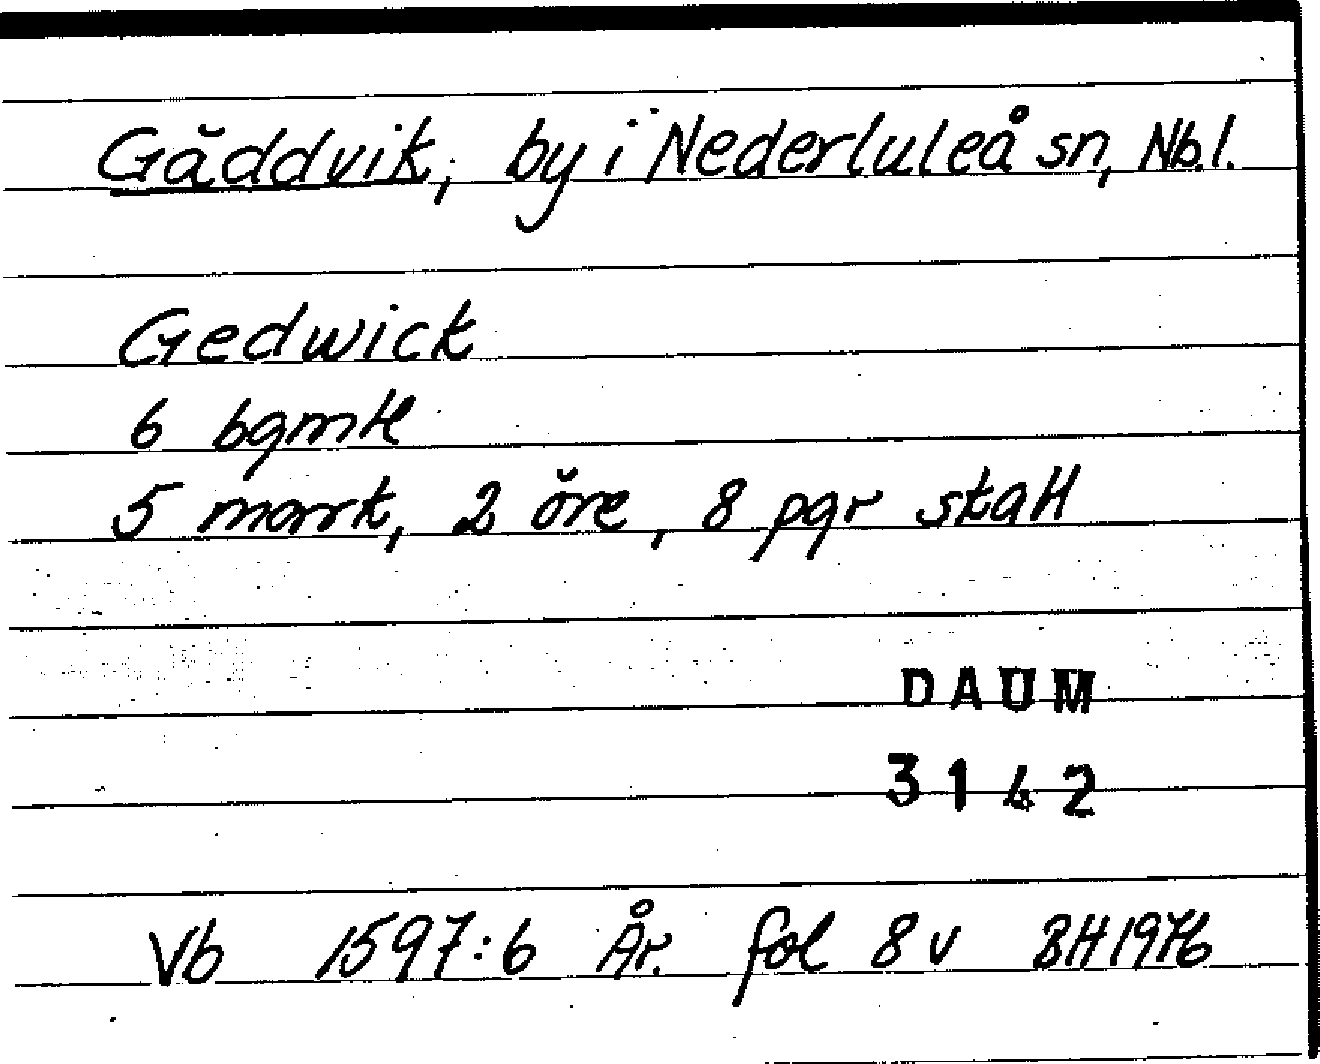 Gäddvik, by i Nederluleå sn, Nb.l.
Gedwick
6 bgmtl
5 mark, 2 öre, 8 pgr skatt
DAUM
3142
Vb 1597:6 År. fol 8 v BH 1976